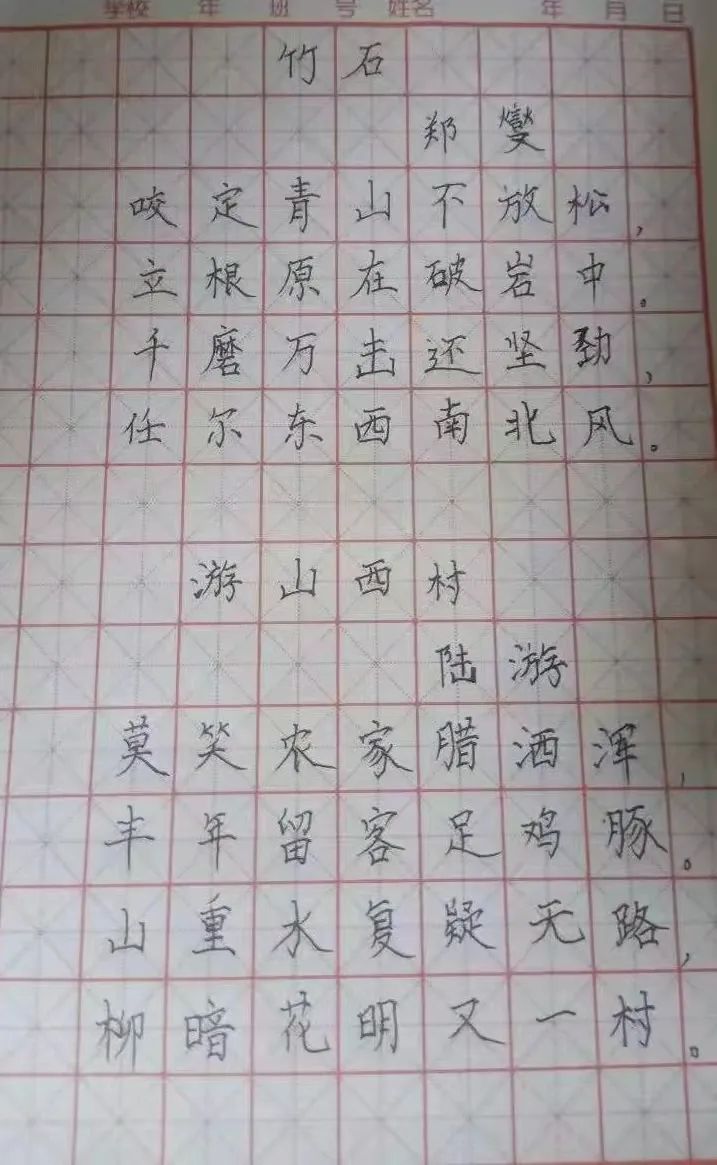 学校 年 班 号 姓名 年 月 日
竹石
郑燮
咬定青山不放松，
立根原在破岩中。
千磨万击还坚劲，
任尔东西南北风。
游山西村
陆游
莫笑农家腊洒浑，
丰年留客足鸡豚。
山重水复疑无路，
柳暗花明又一村。